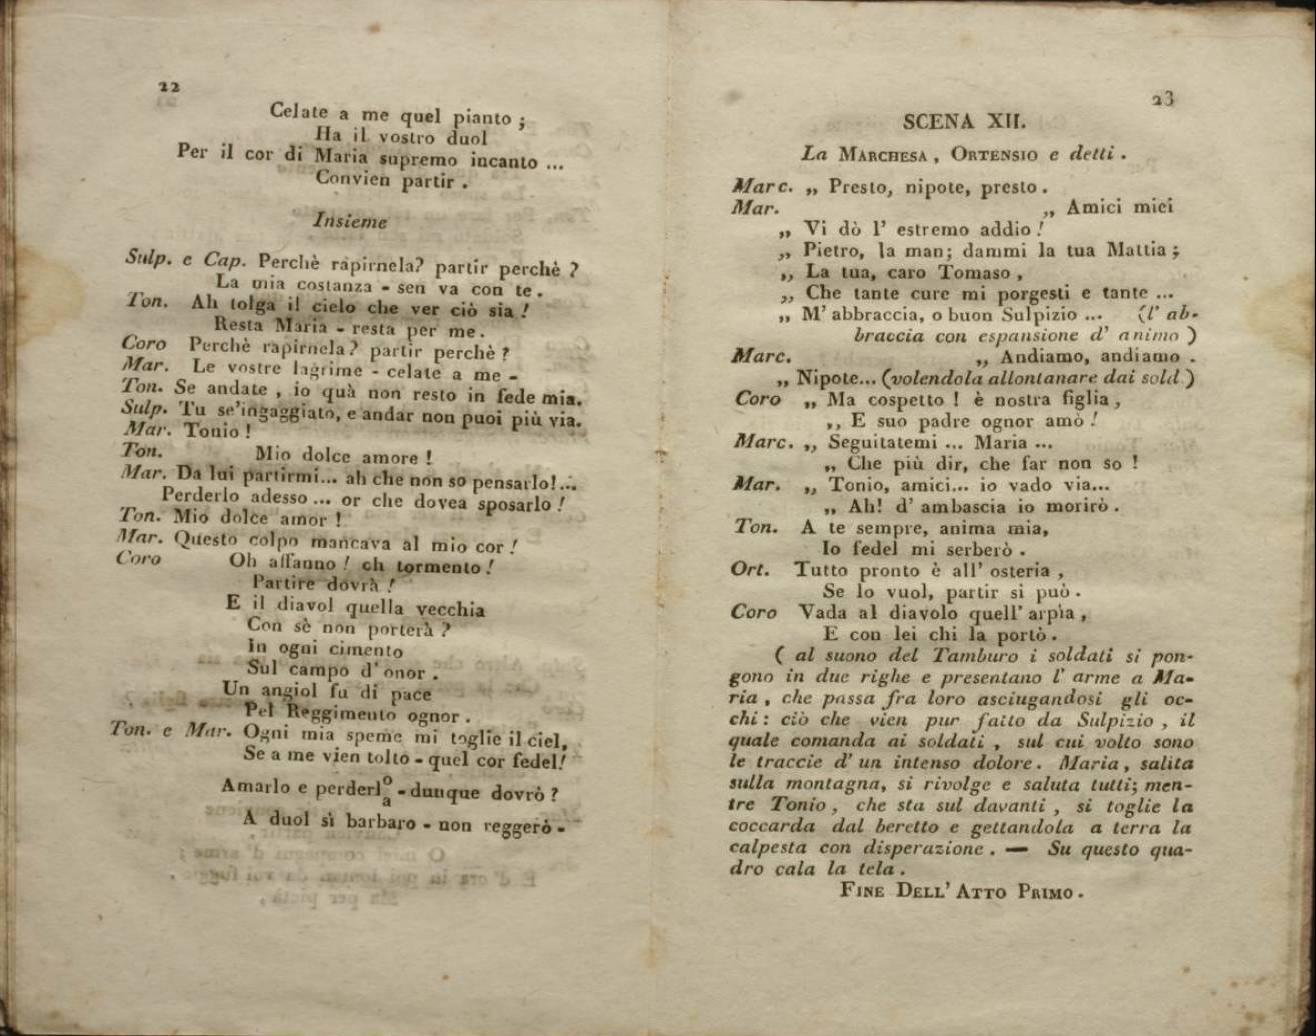 22
Celate a me quel pianto ;
Ha il vostro duol
Per il cor di Maria supremo incanto ...
Convien partir .
Insieme
Sulp. e Cap. Perchè rapirnela? partir perchè ?
La mia costanza - sen va con te .
Ton. Ah tolga il cielo che ver ciò sia !
Resta Maria - resta per me .
Coro Perchè rapirnela? partir perchè ?
Mar. Le vostre lagrime - celate a me -
Ton. Se andate , io quà non resto in fede mia.
Sulp. Tu se'ingaggiato, e andar non puoi più via.
Mar. Tonio !
Ton. Mio dolce amore !
Mar. Da lui partirmi... ah che non so pensarlo!...
Perderlo adesso ... or che dovea sposarlo !
Ton. Mio dolce amor !
Mar. Questo colpo mancava al mio cor !
Coro Oh affanno ! oh tormento !
Partire dovrà !
E il diavol quella vecchia
Con sè non porterà ?
In ogni cimento
Sul campo d' onor .
Un angiol fu di pace
Pel Reggimento ognor .
Ton. e Mar. Ogni mia speme mi toglie il ciel,
Se a me vien tolto - quel cor fedel!
Amarlo e perderl o/a - dunque dovrò ?
A duol sì barbaro - non reggerò -
23
SCENA XII.
La MARCHESA , ORTENSIO e detti .
Marc. „ Presto, nipote, presto .
Mar. „ Amici miei
„ Vi dò l' estremo addio !
„ Pietro, la man; dammi la tua Mattia ;
„ La tua, caro Tomaso ,
„ Che tante cure mi porgesti e tante ...
„ M' abbraccia, o buon Sulpizio ... (l' ab-
braccia con espansione d' animo )
Marc. „ Andiamo, andiamo .
„ Nipote... (volendola allontanare dai sold )
Coro „ Ma cospetto ! è nostra figlia ,
„ E suo padre ognor amò !
Marc. „ Seguitatemi ... Maria ...
„ Che più dir, che far non so !
Mar. „ Tonio, amici... io vado via...
„ Ah! d' ambascia io morirò .
Ton. A te sempre, anima mia,
Io fedel mi serberò .
Ort. Tutto pronto è all' osteria ,
Se lo vuol, partir si può .
Coro Vada al diavolo quell' arpìa ,
E con lei chi la portò .
( al suono del Tamburo i soldati si pon-
gono in due righe e presentano l' arme a Ma-
ria , che passa fra loro asciugandosi gli oc-
chi : ciò che vien pur fatto da Sulpizio , il
quale comanda ai soldati , sul cui volto sono
le traccie d' un intenso dolore . Maria , salita
sulla montagna, si rivolge e saluta tutti; men-
tre Tonio , che sta sul davanti , si toglie la
coccarda dal beretto e gettandola a terra la
calpesta con disperazione . — Su questo qua-
dro cala la tela .
FINE DELL' ATTO PRIMO .